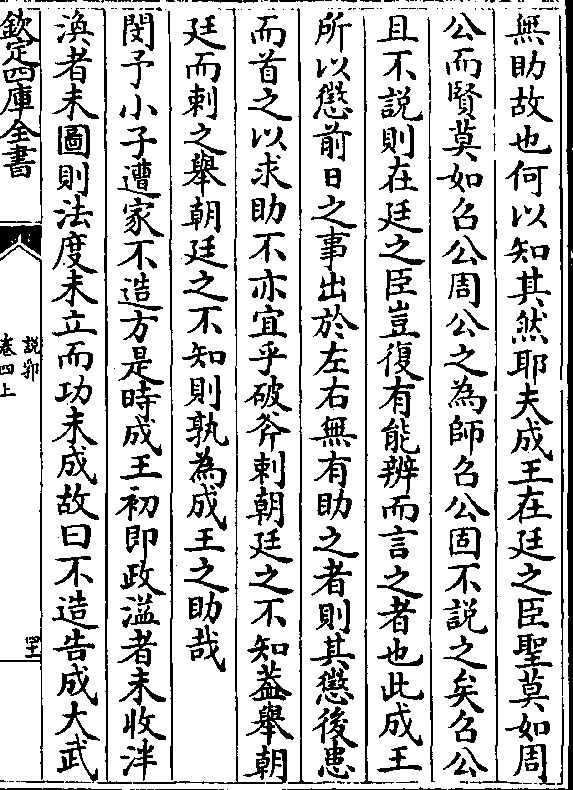 無助故也何以知其然耶夫成王在廷之臣聖莫如周
公而賢莫如召公周公之為師召公固不説之矣召公
且不説則在廷之臣豈復有能辨而言之者也此成王
所以懲前日之事出於左右無有助之者則其懲後患
而首之以求助不亦宜乎破斧刺朝廷之不知葢舉朝
廷而刺之舉朝廷之不知則孰為成王之助哉
閔予小子遭家不造方是時成王初即政溢者未收泮
渙者未圖則法度未立而功未成故曰不造告成大武
欽定四庫全書
說郛
卷四上